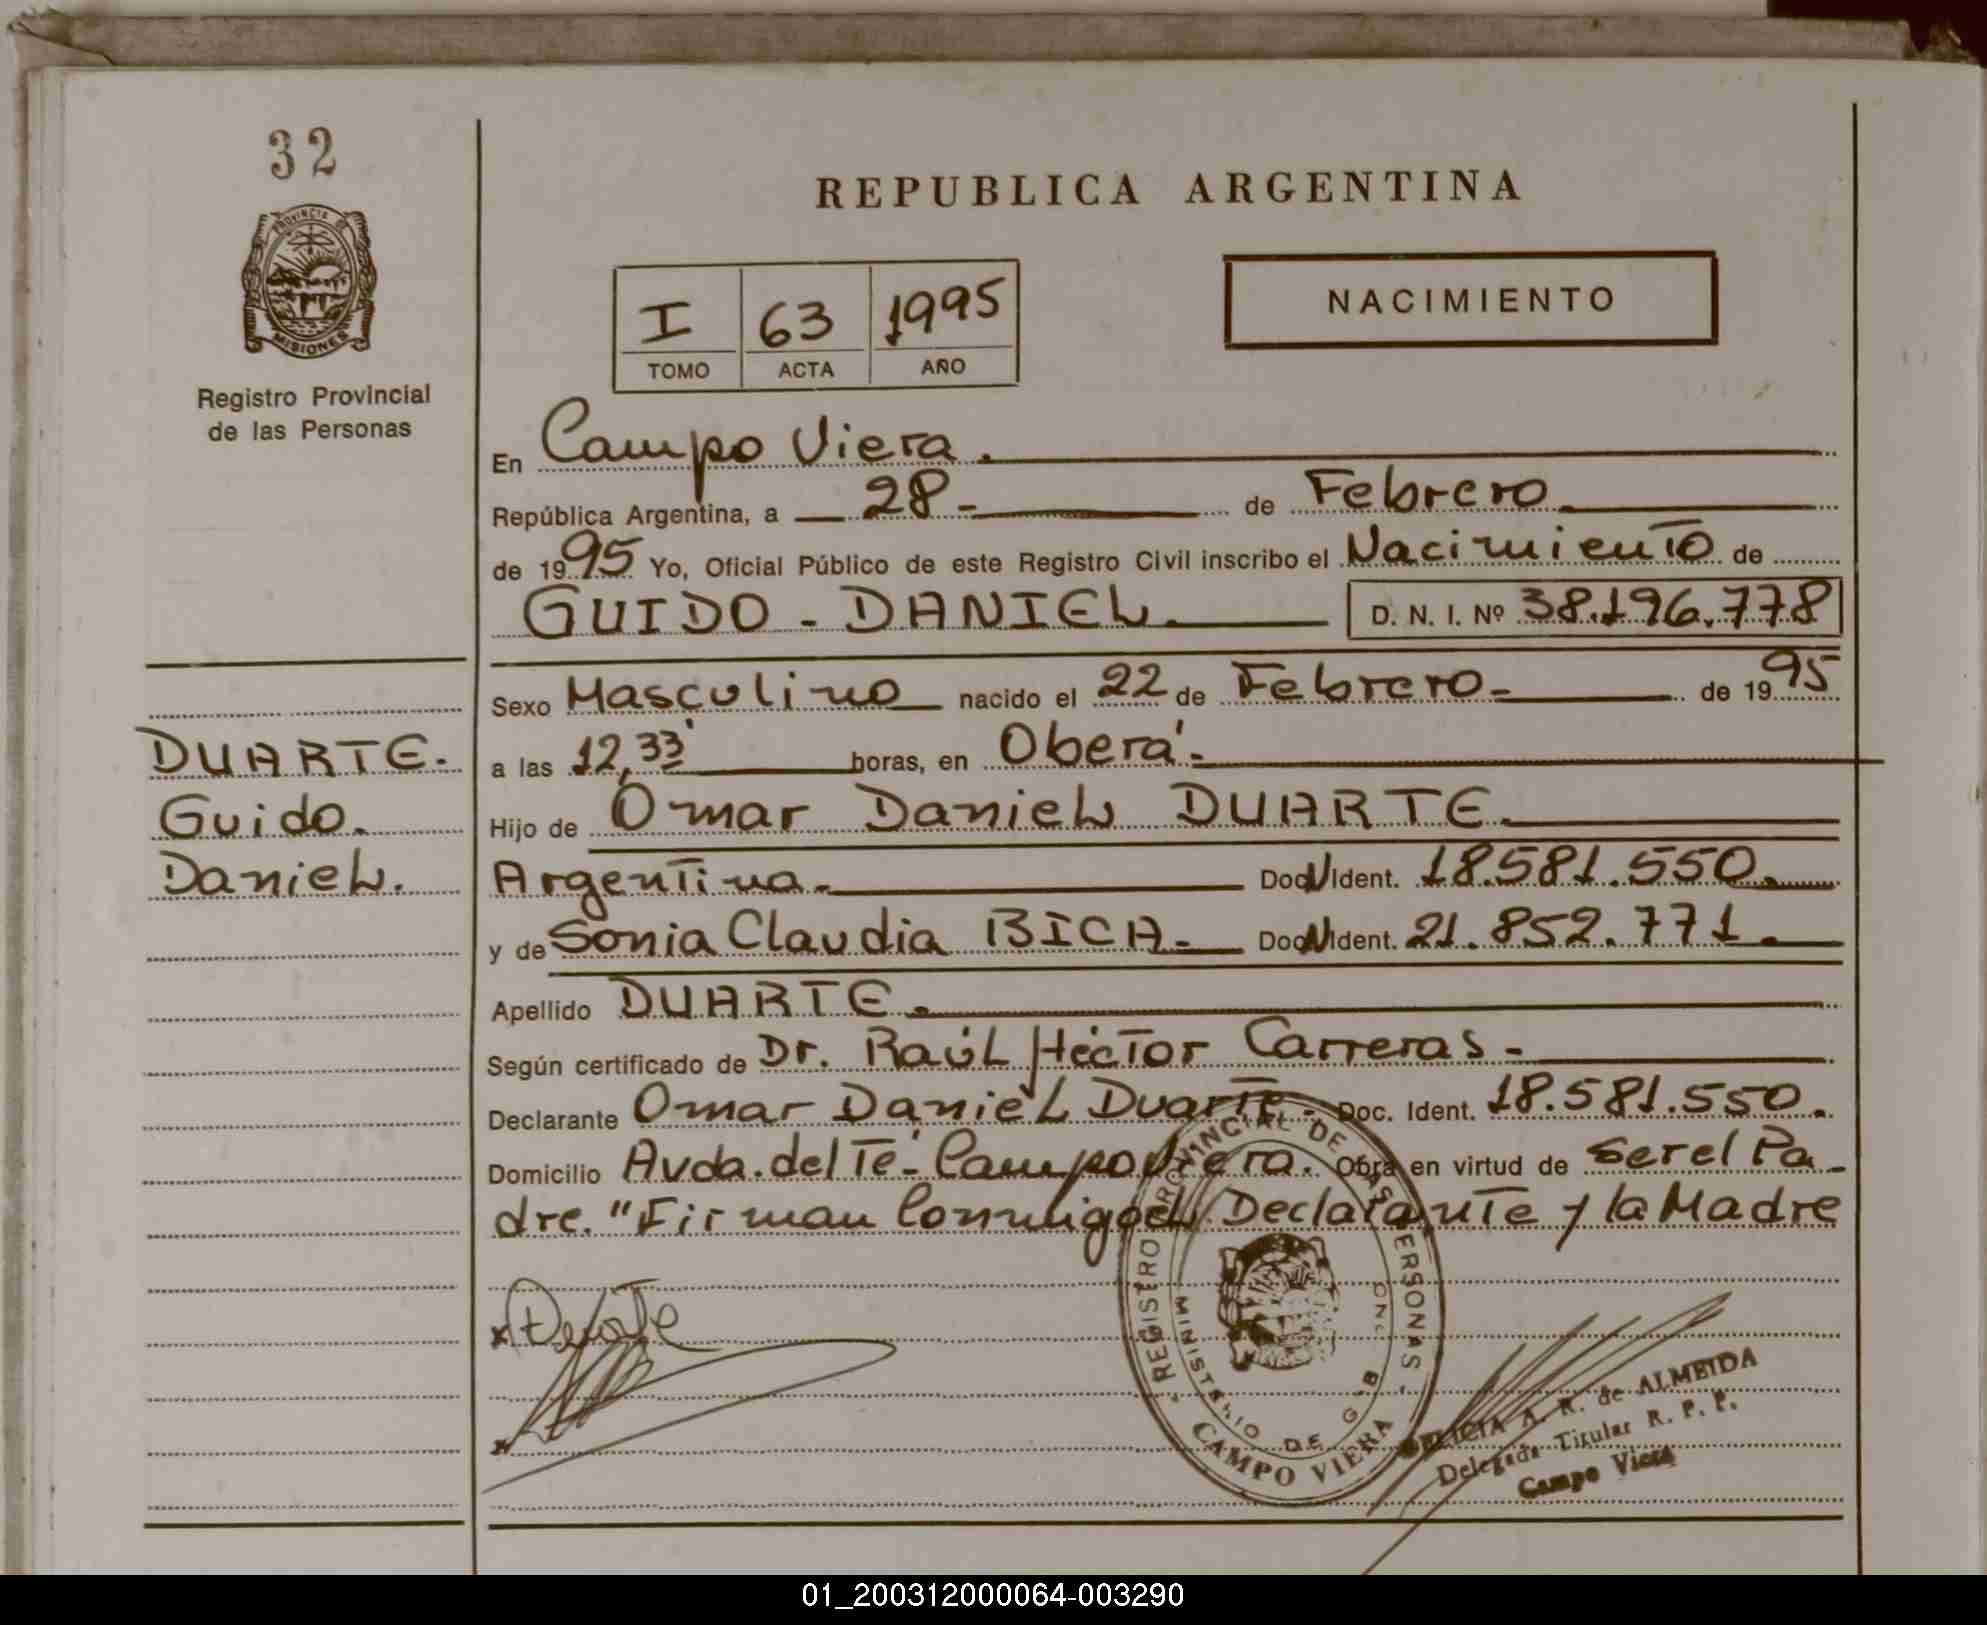 32
REPUBLICA ARGENTINA
PROVINCIA DE
MISIONES
Registro Provincial
de las Personas
I 63 1995
TOMO ACTA AÑO
NACIMIENTO
En Campo Viera.
República Argentina, a 28 - de Febrero
de 1995 Yo, Oficial Público de este Registro Civil inscribo el Nacimiento de
GUIDO - DANIEL. D. N. I. Nº 38.196.778
Sexo Masculino nacido el 22 de Febrero - de 1995
a las 12,33 horas, en Oberá -
Hijo de Omar Daniel DUARTE.
Argentina. Doc. Ident. 18.581.550.
y de Sonia Claudia BICA - Doc. Ident. 21.852.771.
Apellido DUARTE.
Según certificado de Dr. Raúl Héctor Carreras -
Declarante Omar Daniel Duarte - Doc. Ident. 18.581.550.
Domicilio Avda. del Té - Campo Viera. Obra en virtud de Ser el Pa
dre. "Firman Conmigo el Declarante y la Madre
DUARTE.
Guido.
Daniel.
REGISTRO PROVINCIAL DE LAS PERSONAS
MINISTERIO DE GOB
CAMPO VIERA
A. R. de ALMEIDA
Delegada Titular R. P. P.
Campo Viera
01_200312000064-003290